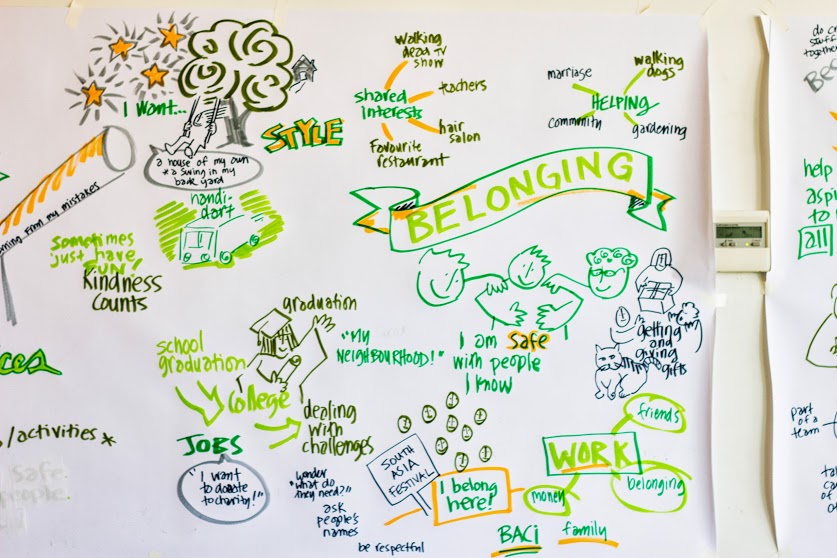 I want...
a house of my own
* a swing in my
back yard
STYLE
walking
dead TV
show
shared
interests
teachers
hair
salon
Favourite
restaurant
marriage
walking
dogs
HELPING
community
gardening
BELONGING
from my mistakes
handi-
dart
sometimes
just have
FUN!
Kindness
Counts
graduation
school
graduation
College
JOBS
dealing
with
challenges
"MY
NEIGHBOURHOOD!"
I am safe
with people
I know
getting
and
giving
gifts
/activities *
safe.
people.
"I want
to donate
to charity!"
wonder
"what do
they need?"
ask
people's
names
be respectful
SOUTH
ASIA
FESTIVAL
I belong
here!
WORK
friends
belonging
money
BACI
family
do
stuff
together
help
aspi
to
all
part
of a
team